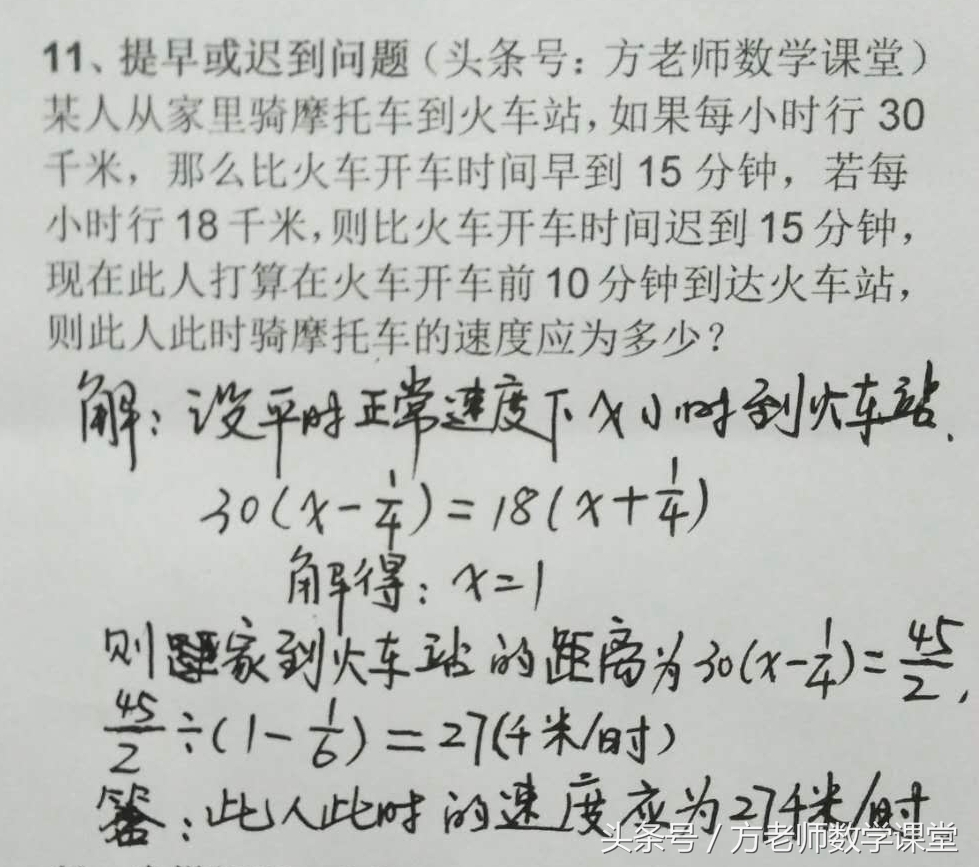 11、提早或迟到问题（头条号：方老师数学课堂）
某人从家里骑摩托车到火车站，如果每小时行 30
千米，那么比火车开车时间早到 15 分钟，若每
小时行 18 千米，则比火车开车时间迟到 15 分钟，
现在此人打算在火车开车前 10 分钟到达火车站，
则此人此时骑摩托车的速度应为多少？
解：设平时正常速度下 x 小时到火车站.
30(x-1/4)=18(x+1/4)
解得：x=1
则家到火车站的距离为30(x-1/4)=45/2,
45/2÷(1-1/6)=27(千米/时)
答：此人此时的速度应为27千米/时
头条号 / 方老师数学课堂